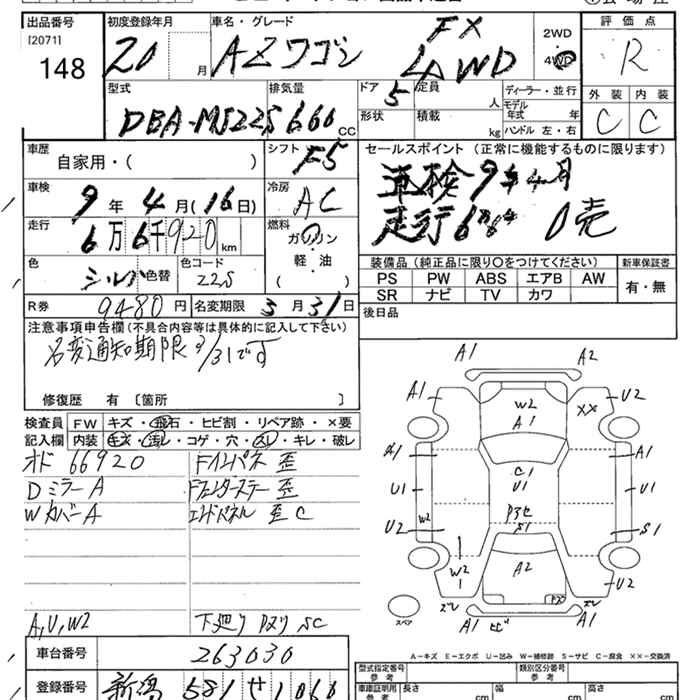 出品番号
[20711]
148
初度登録年月
20 月
車名・グレード
AZワゴン FX 4WD
2WD
4WD
評価点
R
外装 内装
C C
型式
DBA-MJ22S
排気量
660 CC
ドア 5
定員 人
形状
積載 kg
ディーラー・並行
モデル年式 年
ハンドル 左・右
車歴
自家用・( )
シフト F5
セールスポイント(正常に機能するものに限ります)
車検9年4月
走行6万6千 0売
車検
9年4月(16日)
冷房
AC
走行
6万6千920km
燃料
ガソリン
軽・油
( )
色
シルバ 色替
色コード
Z2S
装備品(純正品に限り○をつけてください)
新車保証書
PS PW ABS エアB AW
SR ナビ TV カワ
有・無
R券 9480円
名変期限 3月31日
後日品
注意事項申告欄(不具合内容等は具体的に記入して下さい)
名変通知期限3/31です
修復歴 有〔箇所 〕
検査員記入欄
FW キズ・飛石・ヒビ割・リペア跡・×要
内装 キズ・汚レ・コゲ・穴・スレ・キレ・破レ
オド 66920
Dミラー A
Wカバー A
A,U,W2
Fインパネ 歪
Fフェンダーステー 歪
エンドパネル 歪 C
下廻り Pヌリ SC
A1 A2
A1 U2
W2 A1 XX
A1 A1
C1 U1
U1 U1
P3セ S1
U2 W2 S1
W2 1 A2 U2
ズレ P3 ズレ
A1 ヒビ A1
スペア
A-キズ E-エクボ U-凹み W-補修跡 S-サビ C-腐食 XX-交換済
車台番号
263030
登録番号
新潟 581 せ 1060
型式指定番号 参考
類別区分番号 参考
車庫証明用 参考
長さ cm
幅 cm
高さ cm